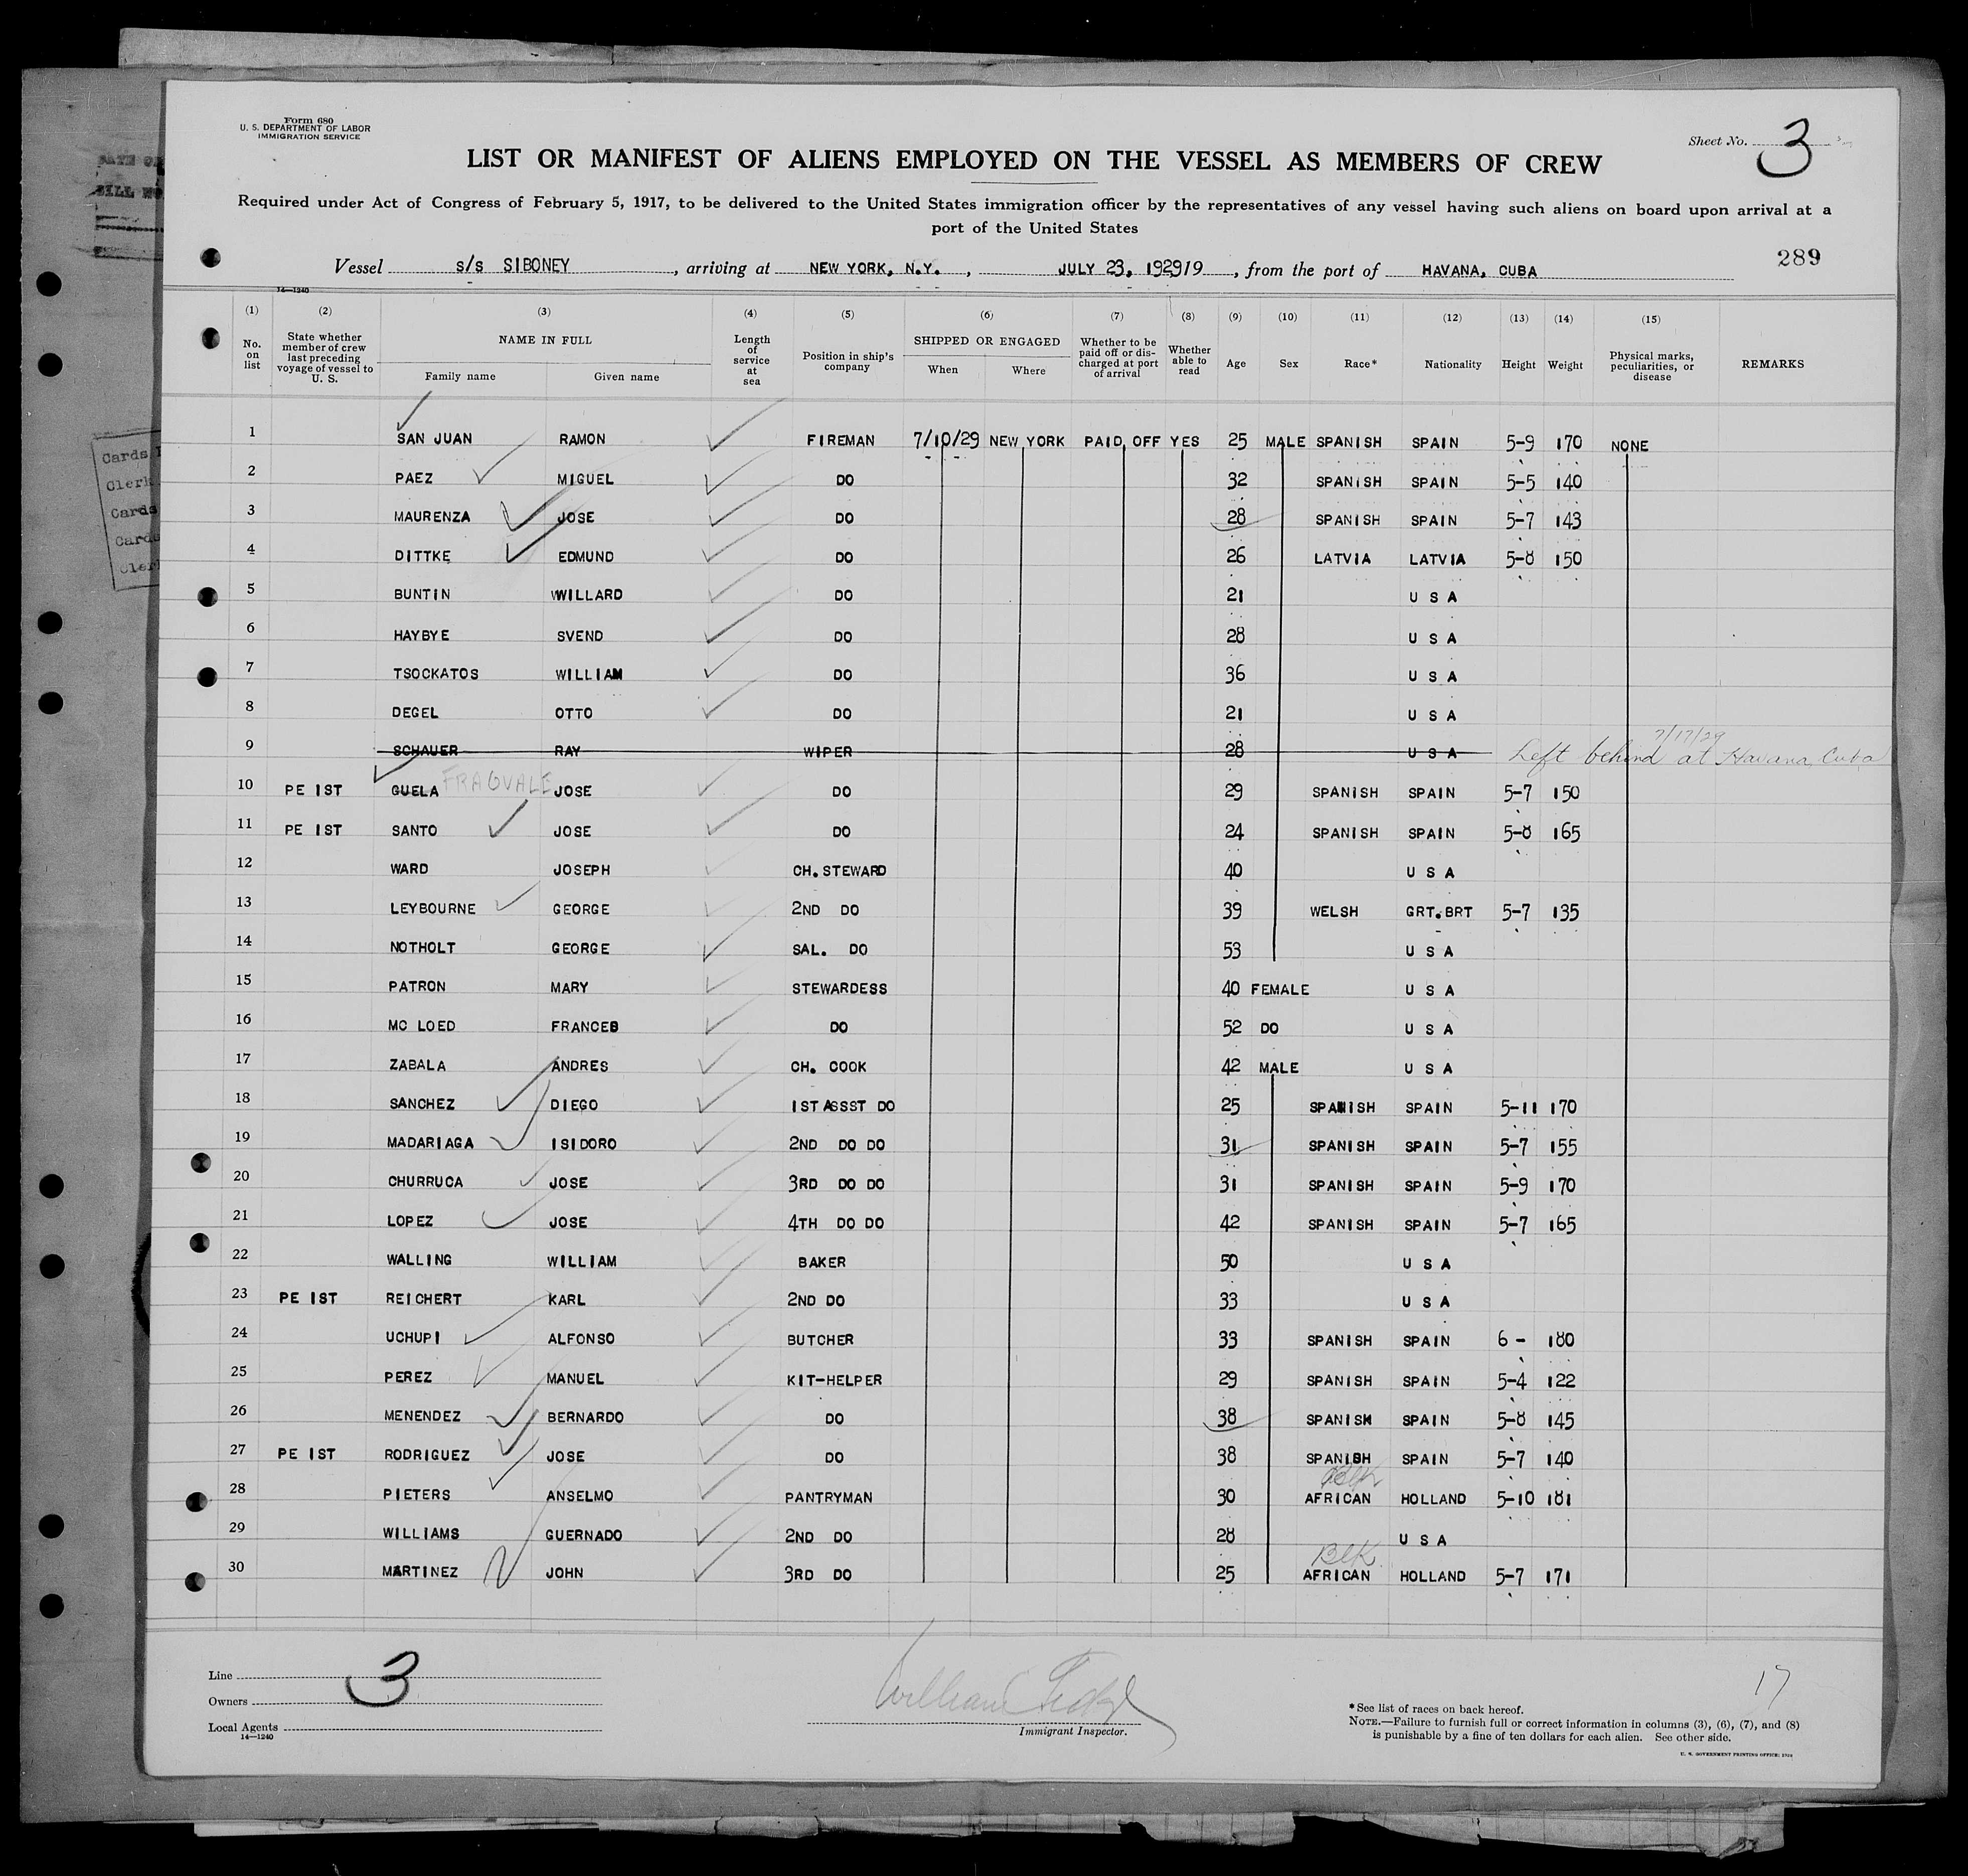 Form 680
U. S. DEPARTMENT OF LABOR
IMMIGRATION SERVICE
Sheet No. 3
LIST OR MANIFEST OF ALIENS EMPLOYED ON THE VESSEL AS MEMBERS OF CREW
Required under Act of Congress of February 5, 1917, to be delivered to the United States immigration officer by the representatives of any vessel having such aliens on board upon arrival at a
port of the United States
289
Vessel S/S SIBONEY, arriving at NEW YORK, N.Y., JULY 23, 192919, from the port of HAVANA, CUBA
14—1240
(1) (2) (3) (4) (5) (6) (7) (8) (9) (10) (11) (12) (13) (14) (15)
No. on list State whether member of crew last preceding voyage of vessel to U. S. NAME IN FULL Family name Given name Length of service at sea Position in ship's company SHIPPED OR ENGAGED When Where Whether to be paid off or discharged at port of arrival Whether able to read Age Sex Race* Nationality Height Weight Physical marks, peculiarities, or disease REMARKS
1 SAN JUAN RAMON FIREMAN 7/10/29 NEW YORK PAID OFF YES 25 MALE SPANISH SPAIN 5-9 170 NONE
2 PAEZ MIGUEL DO 32 SPANISH SPAIN 5-5 140
3 MAURENZA JOSE DO 28 SPANISH SPAIN 5-7 143
4 DITTKE EDMUND DO 26 LATVIA LATVIA 5-8 150
5 BUNTIN WILLARD DO 21 U S A
6 HAYBYE SVEND DO 28 U S A
7 TSOCKATOS WILLIAM DO 36 U S A
8 DEGEL OTTO DO 21 U S A
9 SCHAUER RAY WIPER 28 U S A Left behind 7/17/29 at Havana, Cuba
10 PE IST GUELA FRAGUALE JOSE DO 29 SPANISH SPAIN 5-7 150
11 PE IST SANTO JOSE DO 24 SPANISH SPAIN 5-8 165
12 WARD JOSEPH CH. STEWARD 40 U S A
13 LEYBOURNE GEORGE 2ND DO 39 WELSH GRT. BRT 5-7 135
14 NOTHOLT GEORGE SAL. DO 53 U S A
15 PATRON MARY STEWARDESS 40 FEMALE U S A
16 MC LOED FRANCES DO 52 DO U S A
17 ZABALA ANDRES CH. COOK 42 MALE U S A
18 SANCHEZ DIEGO 1ST ASSST DO 25 SPANISH SPAIN 5-11 170
19 MADARIAGA ISIDORO 2ND DO DO 31 SPANISH SPAIN 5-7 155
20 CHURRUCA JOSE 3RD DO DO 31 SPANISH SPAIN 5-9 170
21 LOPEZ JOSE 4TH DO DO 42 SPANISH SPAIN 5-7 165
22 WALLING WILLIAM BAKER 50 U S A
23 PE IST REICHERT KARL 2ND DO 33 U S A
24 UCHUPI ALFONSO BUTCHER 33 SPANISH SPAIN 6 - 180
25 PEREZ MANUEL KIT-HELPER 29 SPANISH SPAIN 5-4 122
26 MENENDEZ BERNARDO DO 38 SPANISH SPAIN 5-8 145
27 PE IST RODRIGUEZ JOSE DO 38 SPANISH SPAIN 5-7 140
28 PIETERS ANSELMO PANTRYMAN 30 Blk AFRICAN HOLLAND 5-10 181
29 WILLIAMS GUERNADO 2ND DO 28 U S A
30 MARTINEZ JOHN 3RD DO 25 Blk. AFRICAN HOLLAND 5-7 171
Line
Owners
Local Agents
14—1240
3
William
Immigrant Inspector.
17
*See list of races on back hereof.
NOTE.—Failure to furnish full or correct information in columns (3), (6), (7), and (8)
is punishable by a fine of ten dollars for each alien. See other side.
U. S. GOVERNMENT PRINTING OFFICE:
Cards
Clerk
Cards
Cards
Cler